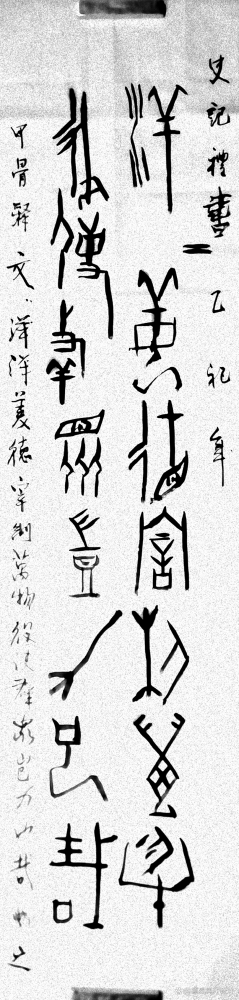 史記禮書 乙祀年
洋=美乎德宰制萬物
役使群眾豈力以哉
甲骨釋文：洋洋美德宰制萬物役使群眾豈力以哉 之